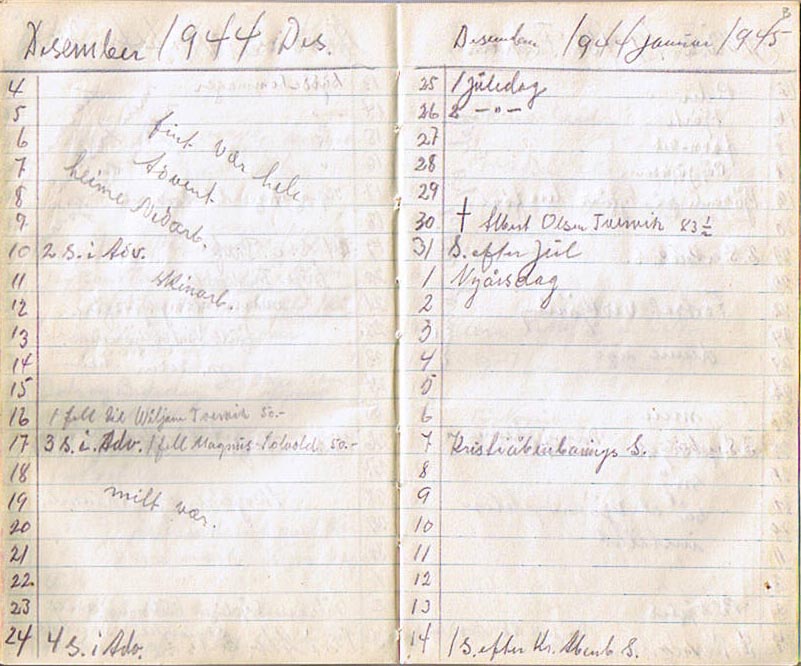 Desember 1944 Des.
4
5
6 fint vær hele
7 Advent
8 heime Vedarb.
9
10 2 S. i Adv.
11 skinarb.
12
13
14
15
16 1 fell til Wiljam Tvervik 50.-
17 3 S. i. Adv. 1 fell Magnus Solvold. 50.-
18
19 milt vær.
20
21
22
23
24 4 S. i Adv.
Desember 1944 januar 1945
25 1 juledag
26 2 -"-
27
28
29
30 † Albert Olsen Tvervik 83 1/2
31 S. efter Jul
1 Nyårsdag
2
3
4
5
6
7 Kristiåbenbarings S.
8
9
10
11
12
13
14 1 S. efter Kr. Åbenb S.